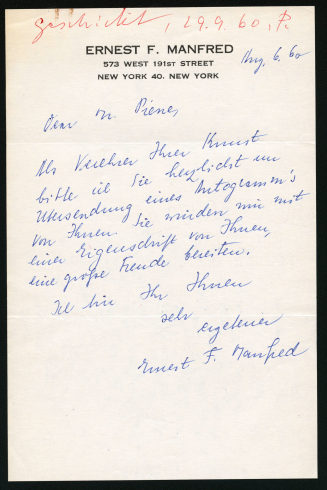 geschickt, 29.9.60, P.
ERNEST F. MANFRED
573 WEST 191ST STREET
NEW YORK 40. NEW YORK
Aug. 6. 60
Dear Mr.
Als Verehrer Ihrer Kunst
bitte ich Sie herzlichst um
Übersendung eines Autogramm's
von Ihnen. Sie würden mir mit
einer Eigenschrift von Ihnen,
eine große Freude bereiten.
Ich bin Ihr Ihnen
sehr
ergebener
Ernest F. Manfred